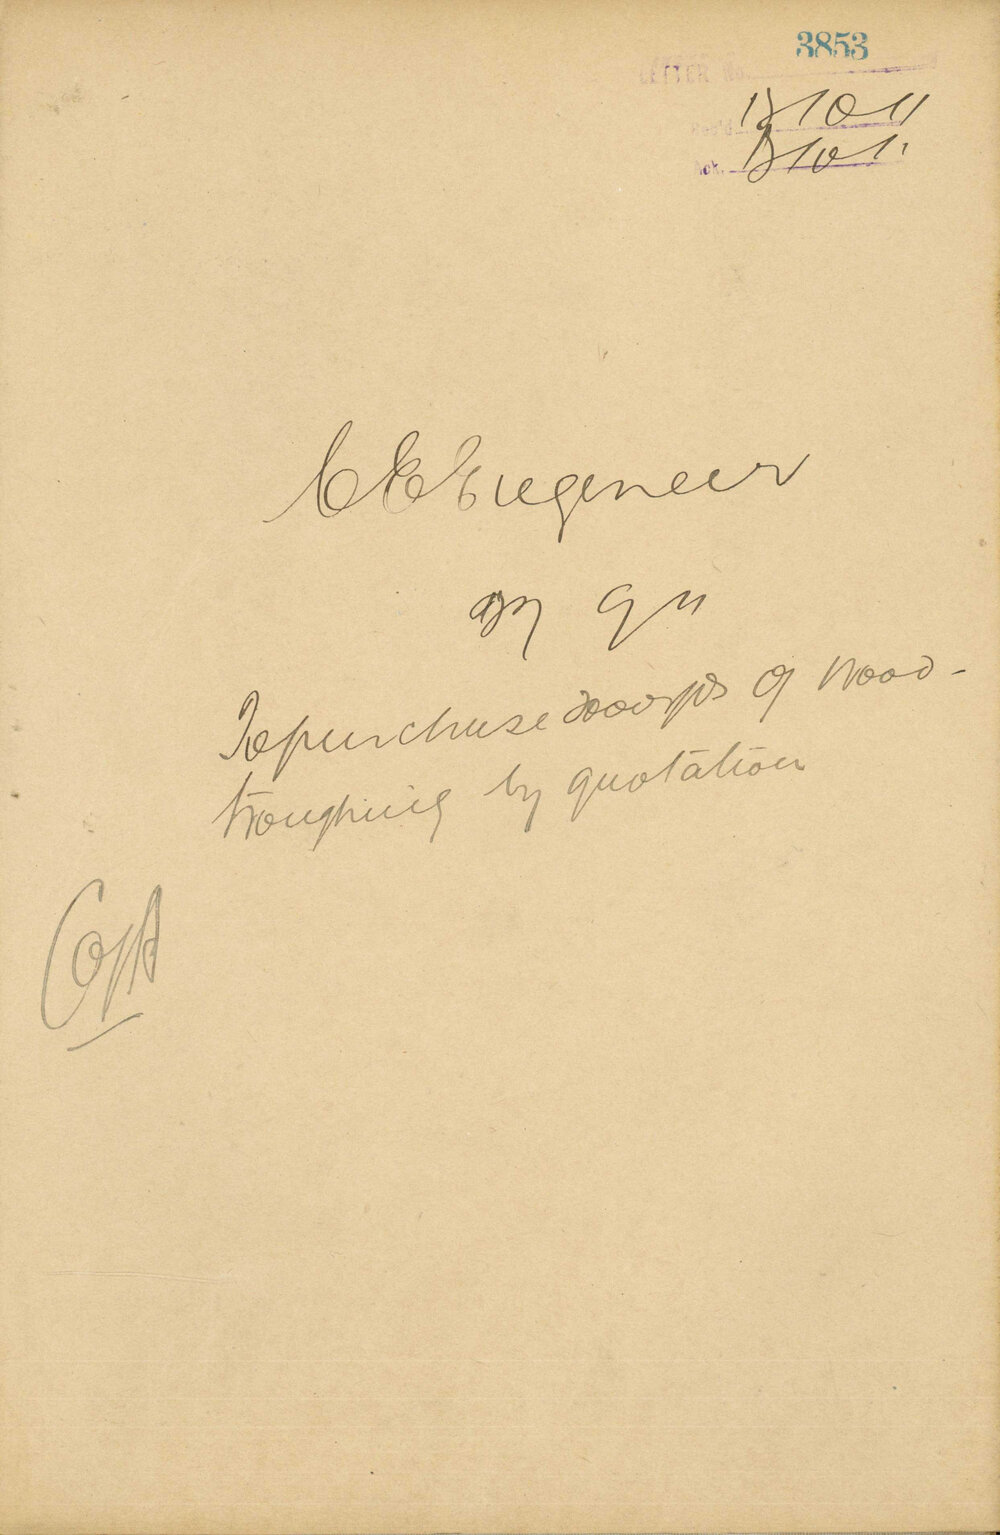 3853
LETTER No.
Rec'd 13/10/11
Ack. 13/10/11
C E Engineer
9/11
Re purchase of wood-
troughing by quotation